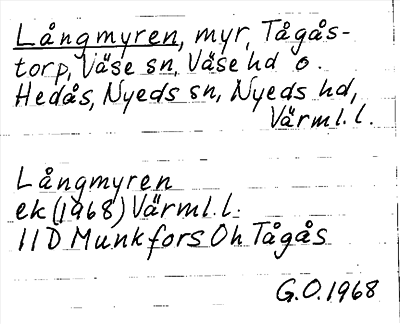 Långmyren, myr, Tågås-
torp, Väse sn, Väse hd o.
Hedås, Nyeds sn, Nyeds hd,
Värml. l.
Långmyren
ek (1968) Värml. l.
11D Munkfors Oh Tågås
G.O. 1968